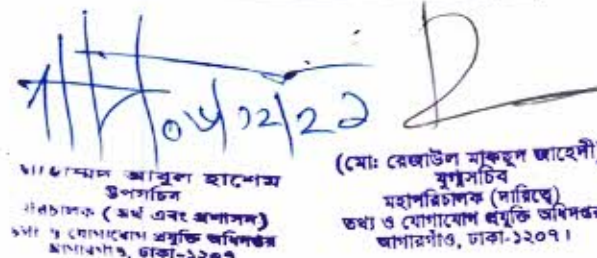 ০৮/১২/২১
মোহাম্মদ আবুল হাশেম
উপসচিব
পরিচালক (অর্থ এবং প্রশাসন)
তথ্য ও যোগাযোগ প্রযুক্তি অধিদপ্তর
আগারগাঁও, ঢাকা-১২০৭
(মো: রেজাউল মাকছুদ জাহেদী)
যুগ্মসচিব
মহাপরিচালক (দায়িত্বে)
তথ্য ও যোগাযোগ প্রযুক্তি অধিদপ্তর
আগারগাঁও, ঢাকা-১২০৭।